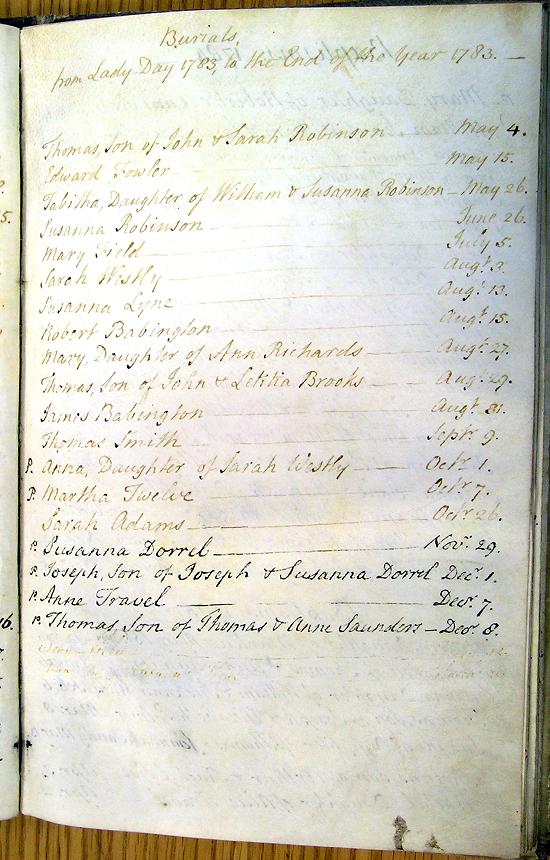 Burials,
from Lady-Day 1783, to the End of the Year 1783. —
Thomas, Son of John & Sarah Robinson May 4.
Edward Fowler — May 15.
Tabitha, Daughter of William & Susanna Robinson — May 26.
Susanna Robinson — June 26.
Mary Field — July 5.
Sarah Westly — Augt. 3.
Susanna Lyne — Augt. 13.
Robert Babington — Augt. 15.
Mary, Daughter of Ann Richards — Augt. 27.
Thomas, Son of John & Letitia Brooks — Augt. 29.
James Babington — Augt. 31.
Thomas Smith — Septr. 9.
P. Anna, Daughter of Sarah Westly — Octr. 1.
P. Martha Twelve — Octr. 7.
Sarah Adams — Octr. 26.
P. Susanna Dorrel — Novr. 29.
P. Joseph, Son of Joseph & Susanna Dorrel Decr. 1.
P. Anne Travel — Decr. 7.
P. Thomas, Son of Thomas & Anne Saunders — Decr. 8.